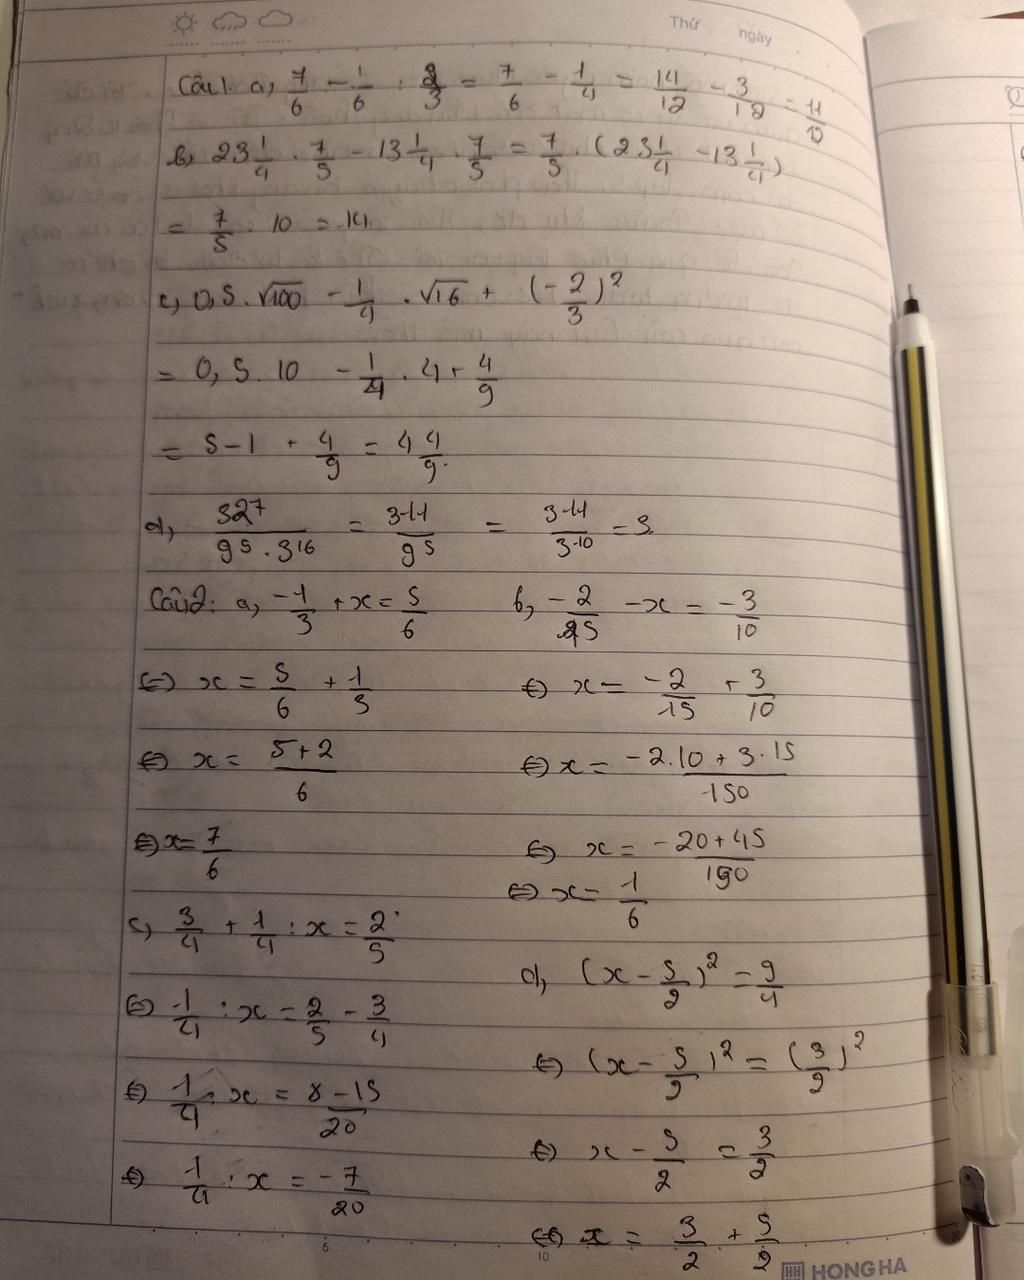 Thứ
ngày
Câu 1: a, 7/6 - 1/6 : 2/3 = 7/6 - 1/4 = 14/12 - 3/12 = 11/12
b, 23 1/4 . 7/5 - 13 1/4 . 7/5 = 7/5 . (23 1/4 - 13 1/4)
= 7/5 . 10 = 14.
c, 0,5 . √100 - 1/4 . √16 + (-2/3)²
= 0,5 . 10 - 1/4 . 4 + 4/9
= 5 - 1 + 4/9 = 4 4/9.
d, 3²⁷/(9⁵ . 3¹⁶) = 3¹¹/9⁵ = 3¹¹/3¹⁰ = 3.
Câu 2: a, -1/3 + x = 5/6
⇔ x = 5/6 + 1/3
⇔ x = (5+2)/6
⇔ x = 7/6
b, -2/15 - x = -3/10
⇔ x = -2/15 + 3/10
⇔ x = (-2.10 + 3.15)/150
⇔ x = (-20+45)/150
⇔ x = 1/6
c, 3/4 + 1/4 : x = 2/5
⇔ 1/4 : x = 2/5 - 3/4
⇔ 1/4 : x = (8-15)/20
⇔ 1/4 : x = -7/20
d, (x - 5/2)² = 9/4
⇔ (x - 5/2)² = (3/2)²
⇔ x - 5/2 = 3/2
⇔ x = 3/2 + 5/2
5
10
HONG HA